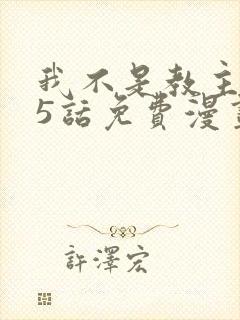 我不是教主
5話免費漫
許澤宏